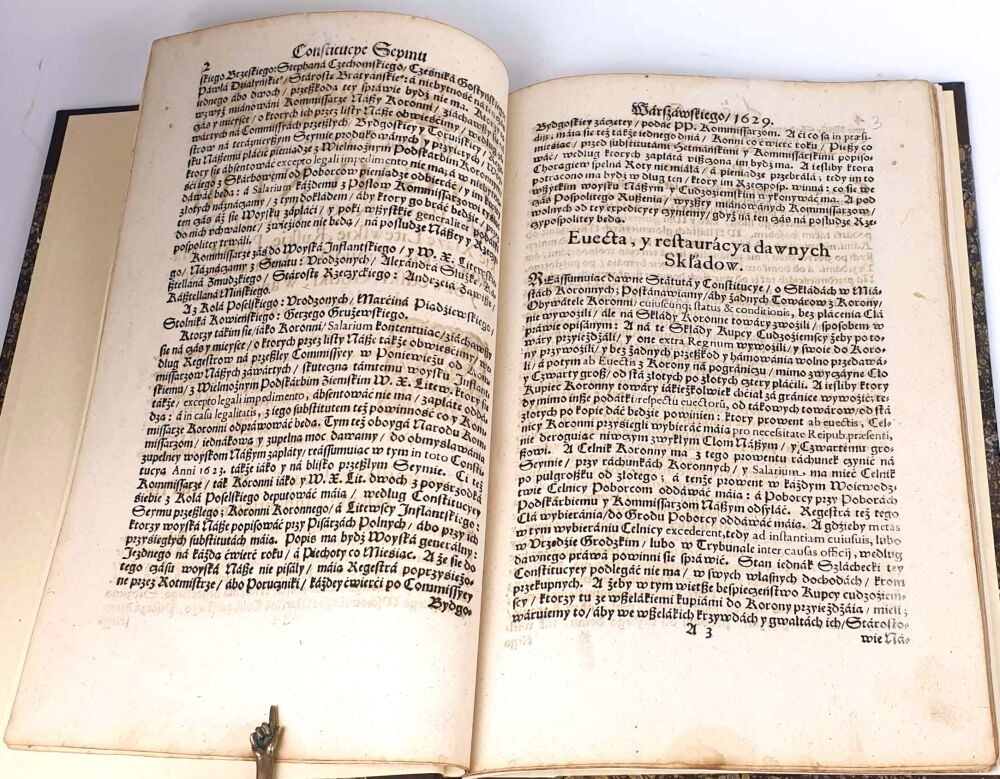 2
Constitucye Seymu
skiego Brzeskiego: Stephana Czechomskiego / Cześniká Gostyńskiego
Páwłá Działyńskie° / Stárostę Brátyáńskie°: á niebytność ná
iednego ábo dwoch / przeszkodá tey spráwie bydź nie ma. Ktorzy
wzwysz miánowáni Kommissarze Nászy Koronni / ziácháwszy się
czás y mieysce / o ktorych ich przez listy Násze obwieścimy / według
wártych ná Commissyách przeszłych, Bydgoskiey y Toruńskiey /
ná teráznieyszym Seymie produkowánych y przyiętych / Woy-
sku Nászemu płácić pieniądze z Wielmożnym Podskárbim Koronnym
ktory się absentowáć excepto legali impedimento nie ma; á w niebytno-
ści iego z Skárbowemi od Poborcow pieniądze odbieráć / y im
dáwáć bedą: á Salarium káżdemu z Posłow Kommissarzowi tysiąc
złotych náznaczamy / z tym dokłádem / áby ktory go bráć bedzie / poki
ten czás áż się Woysku zápłáci / y poki wszystkie generaliter pobory
do nich uchwalone / zwiezione nie będą / ná posłudze Nászey y Rzeczy-
pospolitey trwáli.
Kommissarze zás do Woyská Inflantskiego / y W. X. Litewskie-
go / Náznaczamy z Senatu: Urodzonych / Alexándrá Słuszkę /
sztelláná Zmudzkiego / Stárostę Rzeczyckiego: Andrzeiá Záwiszę /
Kásztelláná Mińskiego.
A z Kołá Poselskiego: Vrodzonych / Márciná Piádziewskiego /
Stolniká Kowieńskiego: Gerzego Grużewskiego.
Ktorzy tákim sie / iáko Koronni / Salarium kontentuiąc / ziácháwszy
się ná czás y mieysce / o ktorych przez listy Násze tákże obwieścimy /
dług Regestrow ná przeszłey Commissyey w Poniewieżu od Kom-
missarzow Nászych záwártych / skuteczną támtemu woysku Inflant-
skiemu / z Wielmożnym Podskárbim Ziemskim W. X. Litew. ktory się
tákże / excepto legali impedimento, absentowáć nie ma / zápłátę oddá-
dzą: á in casu legalitatis, z iego substitutem też powinność co y Kom-
missarze Koronni odpráwowáć będą. Tym też oboygá Narodu Kom-
missarzom / iednákową y zupełną moc dáwamy / do obmyślawánia
zupełney woyskom Nászym zápłáty / reássumuiąc w tym in toto Consti-
tucyą Anni 1623. tákże iáko y ná blisko przeszłym Seymie. Ci też
Kommissarze / ták Koronni iáko y W. X. Lit. dwoch z posrzodká
siebie z Kołá Poselskiego deputowáć máią / według Constitucyey
Seymu przeszłego; Koronni Koronnego / á Litewscy Inflantskiego:
ktorzy woyská Násze popisowáć przy Pisárzách Polnych / ábo przy ich
przysięgłych substitutách máią. Popis ma bydź Woyská generalny:
Jezdnego ná káżdą ćwierć roku / á Piechoty co Miesiąc. A że się do
tego czásu woyská Násze nie pisáły / máią Regestrá poprzysiężo-
ne przez Rotmistrze / ábo Poruczniki / káżdey ćwierći po Commissyey
Bydgo-
Wárszáwskiego / 1629.
3
Bydgoskiey záczętey / podáć PP. Kommissarzom. A ći co są in præsi-
diis, máią się też tákże iednego dniá / Konni co ćwierć roku / Pieszy co
miesiąc / przed substitutámi Hetmáńskimi y Kommissarskimi popiso-
wáć / według ktorych zápłátá uiszczona im bydź ma. A iesliby ktora
Chorągiew spełná Roty nie miáłá / á pieniądze przebráłá; tedy im to
potrącono ma bydź w dług ten / ktory im Rzeczposp. winná: co się we
wszystkim woysku Nászym y Cudzoziemskim wykonywáć ma. A pod
czás Pospolitego Ruszenia / wyszszey miánowánych Kommissarzow /
wolnych od tey expedycyey czyniemy / gdyż ná ten czás ná posłudze Rze-
czypospolitey będą.
Euecta, y restaurácya dawnych
Składow.
REássumuiąc dawne Státutá y Constitucye / o Skłádách w Miá-
stách Koronnych; Postánawiamy / áby żadnych Towárow z Korony /
Obywátele Koronni / cuiuscunq; status & conditionis, bez płácenia Cłá
nie wywoźili / ále ná Skłády Koronne towáry zwoźili / sposobem w
práwie opisánym: A ná te Skłády Kupcy Cudzoziemscy żeby po to-
wáry przyieżdżáli / y one extra Regnum wywoźili / y swoie do Koro-
ny przywoźili / y bez żadnych przeszkod y hámowánia wolno przedawá-
li / á potym ab Euectis z Korony ná pográniczu / mimo zwyczáyne Cło
y Czwárty grosz / od stá złotych po złotych cztery płáćili. A iesliby ktory
Kupiec Koronny towáry iákieżkolwiek chciał zá gránice wywoźić; te-
dy mimo insze podatki / respectu euectorũ, od tákowych towárow / od stá
złotych po kopie dáć będzie powinien: ktory prowent ab euectis, Cel-
nicy Koronni przysięgli wybieráć máią pro necessitate Reipub. præsenti,
nie deroguiąc niwczym zwykłym Cłom Nászym / y Czwártemu gro-
szowi. A Celnik Koronny ma z tego prowentu ráchunek czynić ná
Seymie / przy ráchunkách Koronnych / y Salarium, ma mieć Celnik
po pułgroszku od złotego; á tenże prowent w káżdym Woiewodz-
twie Celnicy Poborcom oddáwáć máią: á Poborcy przy Poborách
Podskárbiemu y Kommissarzom Nászym odsyłáć. Regestrá też tego
Cłá wybierániá / do Grodu Poborcy oddáwáć máią. A gdzieby metas
w tym wybierániu Celnicy excederent, tedy ad instantiam cuiusuis, lubo
w Vrzędzie Grodzkim / lubo w Trybunale inter causas officij, według
dawnego práwá powinni się spráwić. Stan iednák Szláchecki tey
Constitucyey podlegáć nie ma / w swych własnych dochodách / krom
przekupnych. A żeby w tym wietsze bespieczeństwo Kupcy cudzoziem-
scy / ktorzy tu ze wszelákiemi kupiámi do Korony przyieżdżáią / mieli;
wáruiemy to / áby we wszelákich krzywdách y gwałtách ich / Stárosto-
A 3
wie Ná-